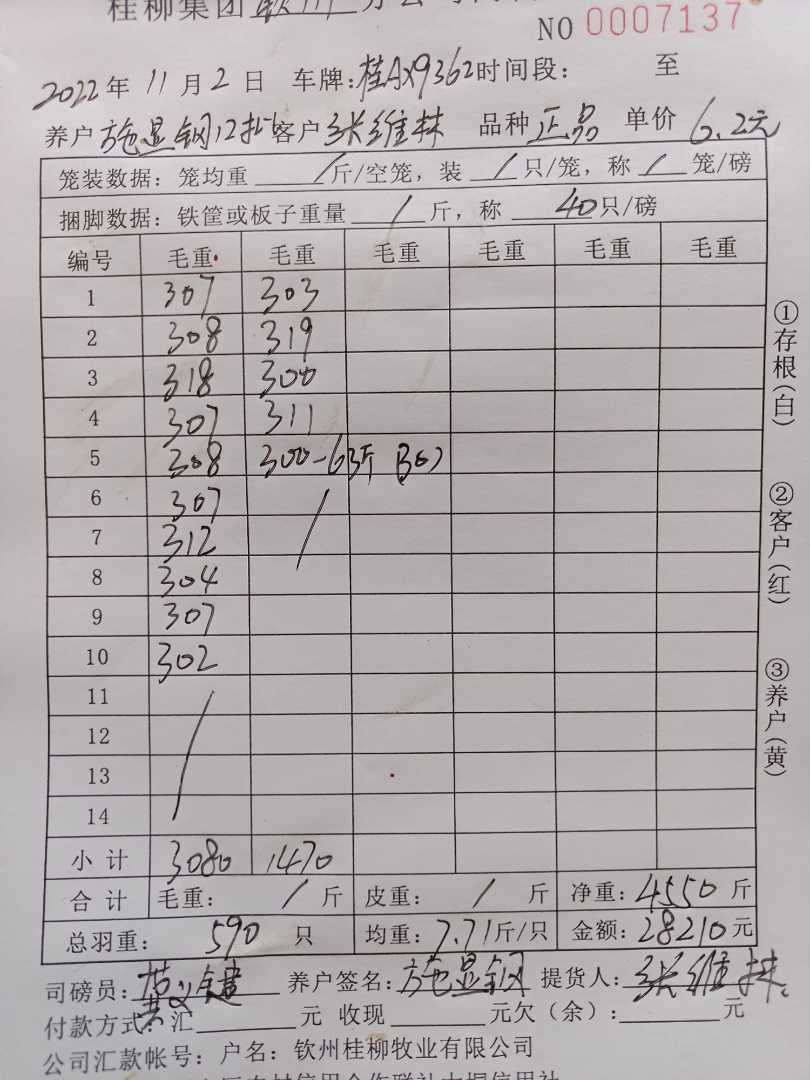 桂柳集团钦州分公司
NO 0007137
2022年11月2日 车牌:桂AX9362时间段: 至
养户施显钢12批客户张维林 品种正品 单价6.2元
笼装数据: 笼均重/斤/空笼, 装/只/笼, 称/笼/磅
捆脚数据: 铁筐或板子重量/斤, 称40只/磅
编号 毛重 毛重 毛重 毛重 毛重 毛重
1 307 303
2 308 319
3 318 300
4 307 311
5 308 300-63斤
6 307 /
7 312
8 304
9 307
10 302
11 /
12
13
14
小计 3080 1470
合计 毛重: /斤 皮重: /斤 净重:4550斤
总羽重: 590只 均重:7.71斤/只 金额:28210元
司磅员: 养户签名:施显钢 提货人:张维林
付款方式: 汇 元 收现 元欠(余): 元
公司汇款帐号: 户名: 钦州桂柳牧业有限公司
①存根(白)
②客户(红)
③养户(黄)